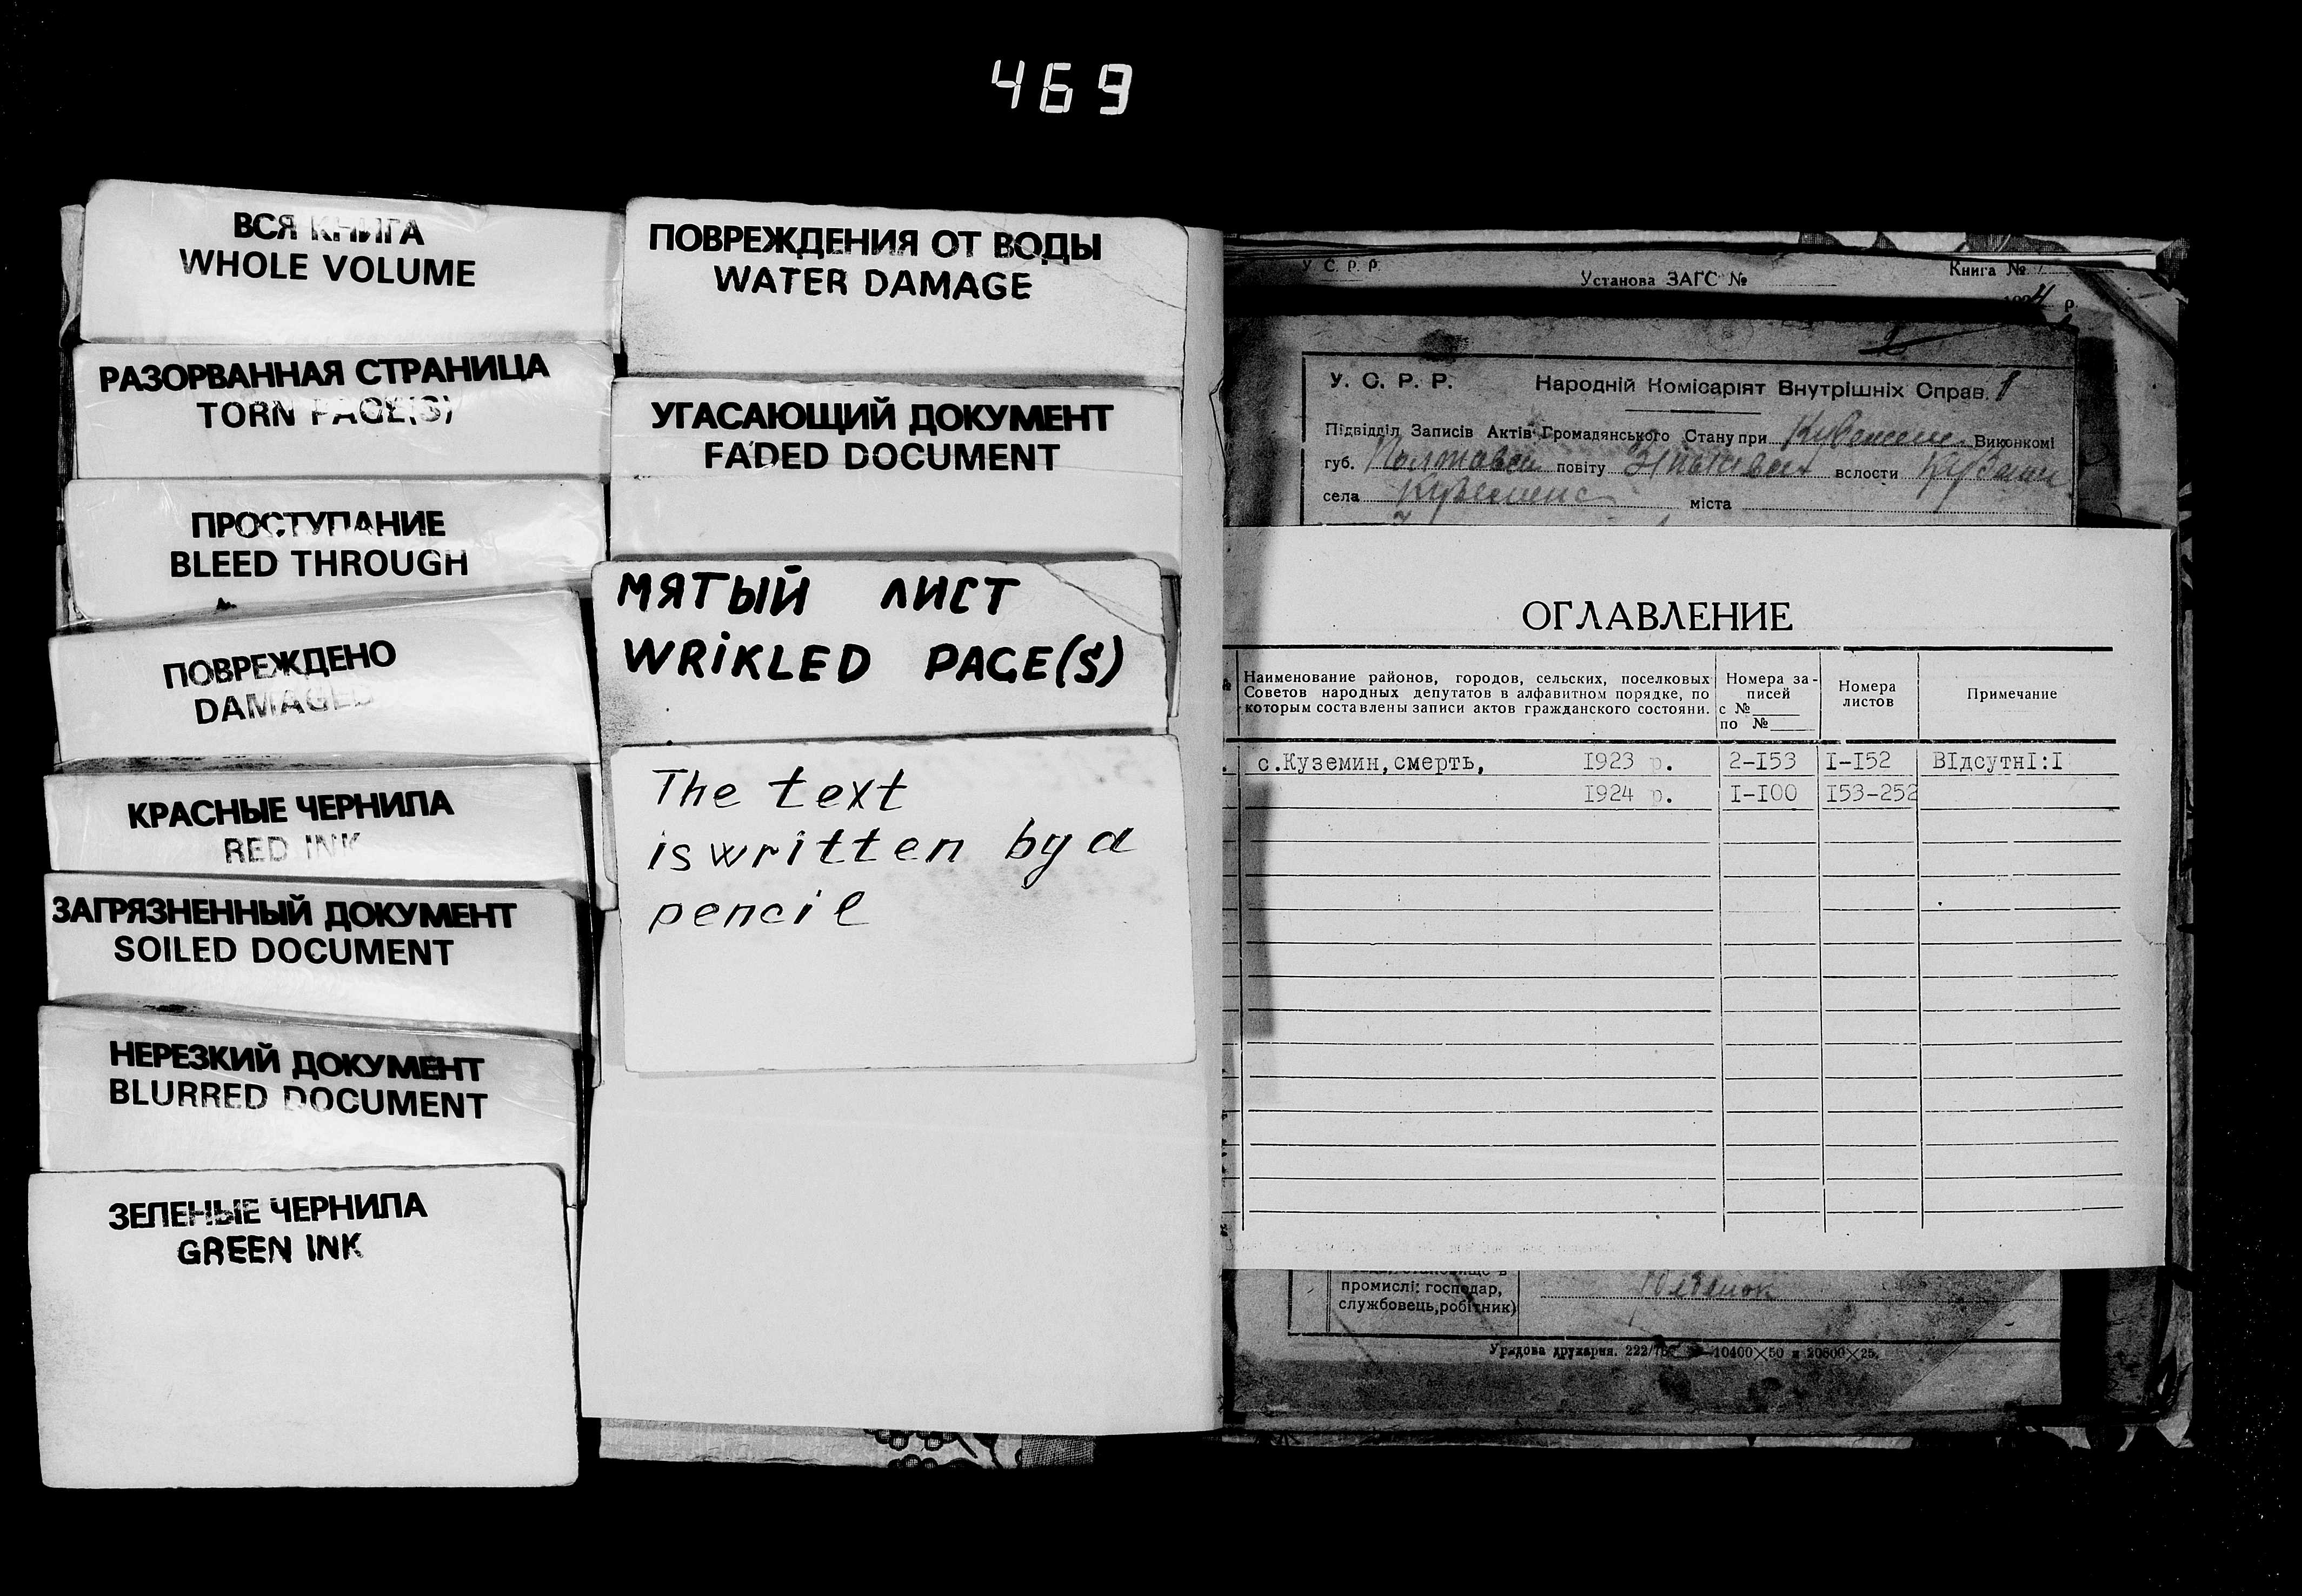 469
ВСЯ КНИГА
WHOLE VOLUME
РАЗОРВАННАЯ СТРАНИЦА
TORN PAGE(S)
ПРОСТУПАНИЕ
BLEED THROUGH
ПОВРЕЖДЕНО
DAMAGED
КРАСНЫЕ ЧЕРНИЛА
RED INK
ЗАГРЯЗНЕННЫЙ ДОКУМЕНТ
SOILED DOCUMENT
НЕРЕЗКИЙ ДОКУМЕНТ
BLURRED DOCUMENT
ЗЕЛЕНЫЕ ЧЕРНИЛА
GREEN INK
ПОВРЕЖДЕНИЯ ОТ ВОДЫ
WATER DAMAGE
УГАСАЮЩИЙ ДОКУМЕНТ
FADED DOCUMENT
МЯТЫЙ ЛИСТ
WRiKLED PAGE(S)
The text
is written by a
pencil
У. С. Р. Р.
Установа ЗАГС №
Книга №
1924 р.
У. С. Р. Р. Народній Комісаріят Внутрішніх Справ.
Підвідділ Записів Актів Громадянського Стану при Виконкомі
губ. повіту вслости
села міста
ОГЛАВЛЕНИЕ
Наименование районов, городов, сельских, поселковых
Советов народных депутатов в алфавитном порядке, по
которым составлены записи актов гражданского состояни.
Номера за-
писей
с №
по №
Номера
листов
Примечание
с.Куземин,смерть, 1923 р. 2-I53 I-I52 ВIдсутнI:I
I924 р. I-I00 I53-252
промислі: господар,
службовець,робітник)
Урядова друкарня. 10400×50 и 20800×25.